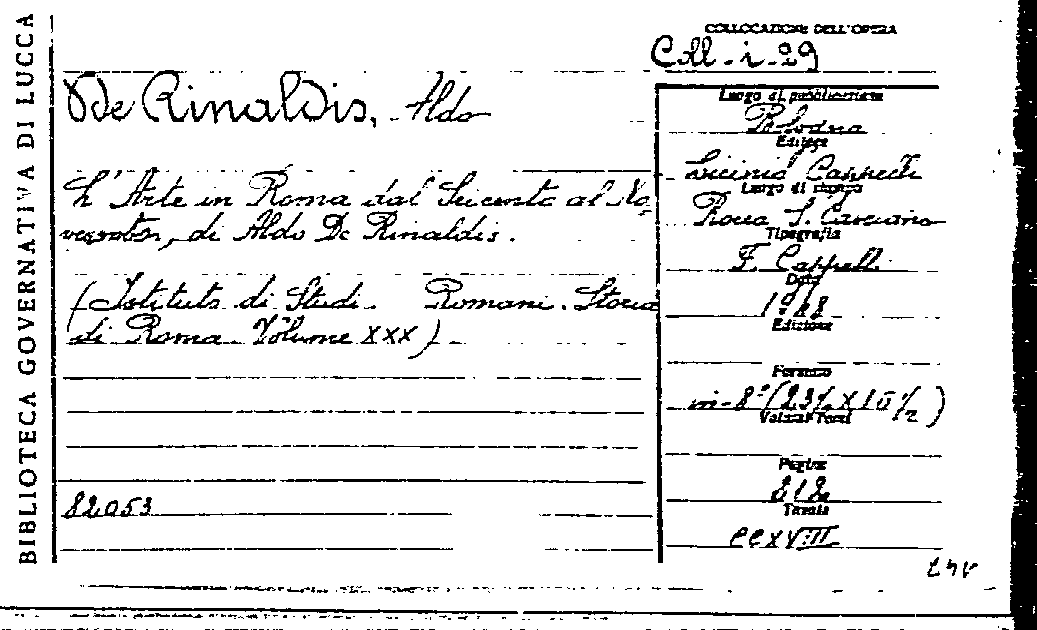 BIBLIOTECA GOVERNATIVA DI LUCCA
COLLOCAZIONE DELL'OPERA
Coll-i-29
De Rinaldis, Aldo
L'Arte in Roma dal Seicento al No-
vecento, di Aldo De Rinaldis.
(Istituto di Studi Romani. Storia
di Roma. Volume XXX)
82053
Luogo di pubblicazione
Bologna
Editore
Licinio Cappelli
Luogo di stampa
Rocca S. Casciano
Tipografia
F. Cappelli
Data
1948
Edizione
Formato
in-8°
Volumi
Pagine
212
Tavole
CCXVIII